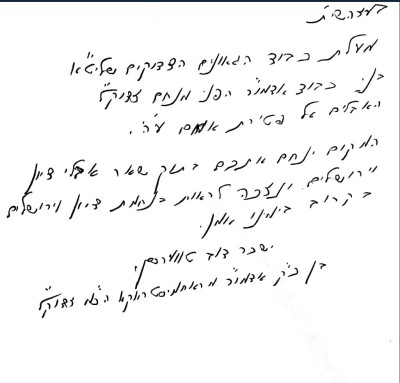 בעזהשי"ת
מעלת כבוד הגאונים הצדיקים שליט"א
בני כבוד אדמו"ר הפני מנחם זצוק"ל
האבלים על פטירת אמם ע"ה.
המקום ינחם אתכם בתוך שאר אבלי ציון
וירושלים ונזכה לראות בנחמת ציון וירושלים
בקרוב בימינו אמן.
ישכר דוב
בן כ"ק אדמו"ר מראחמיסטריווקא זצוק"ל